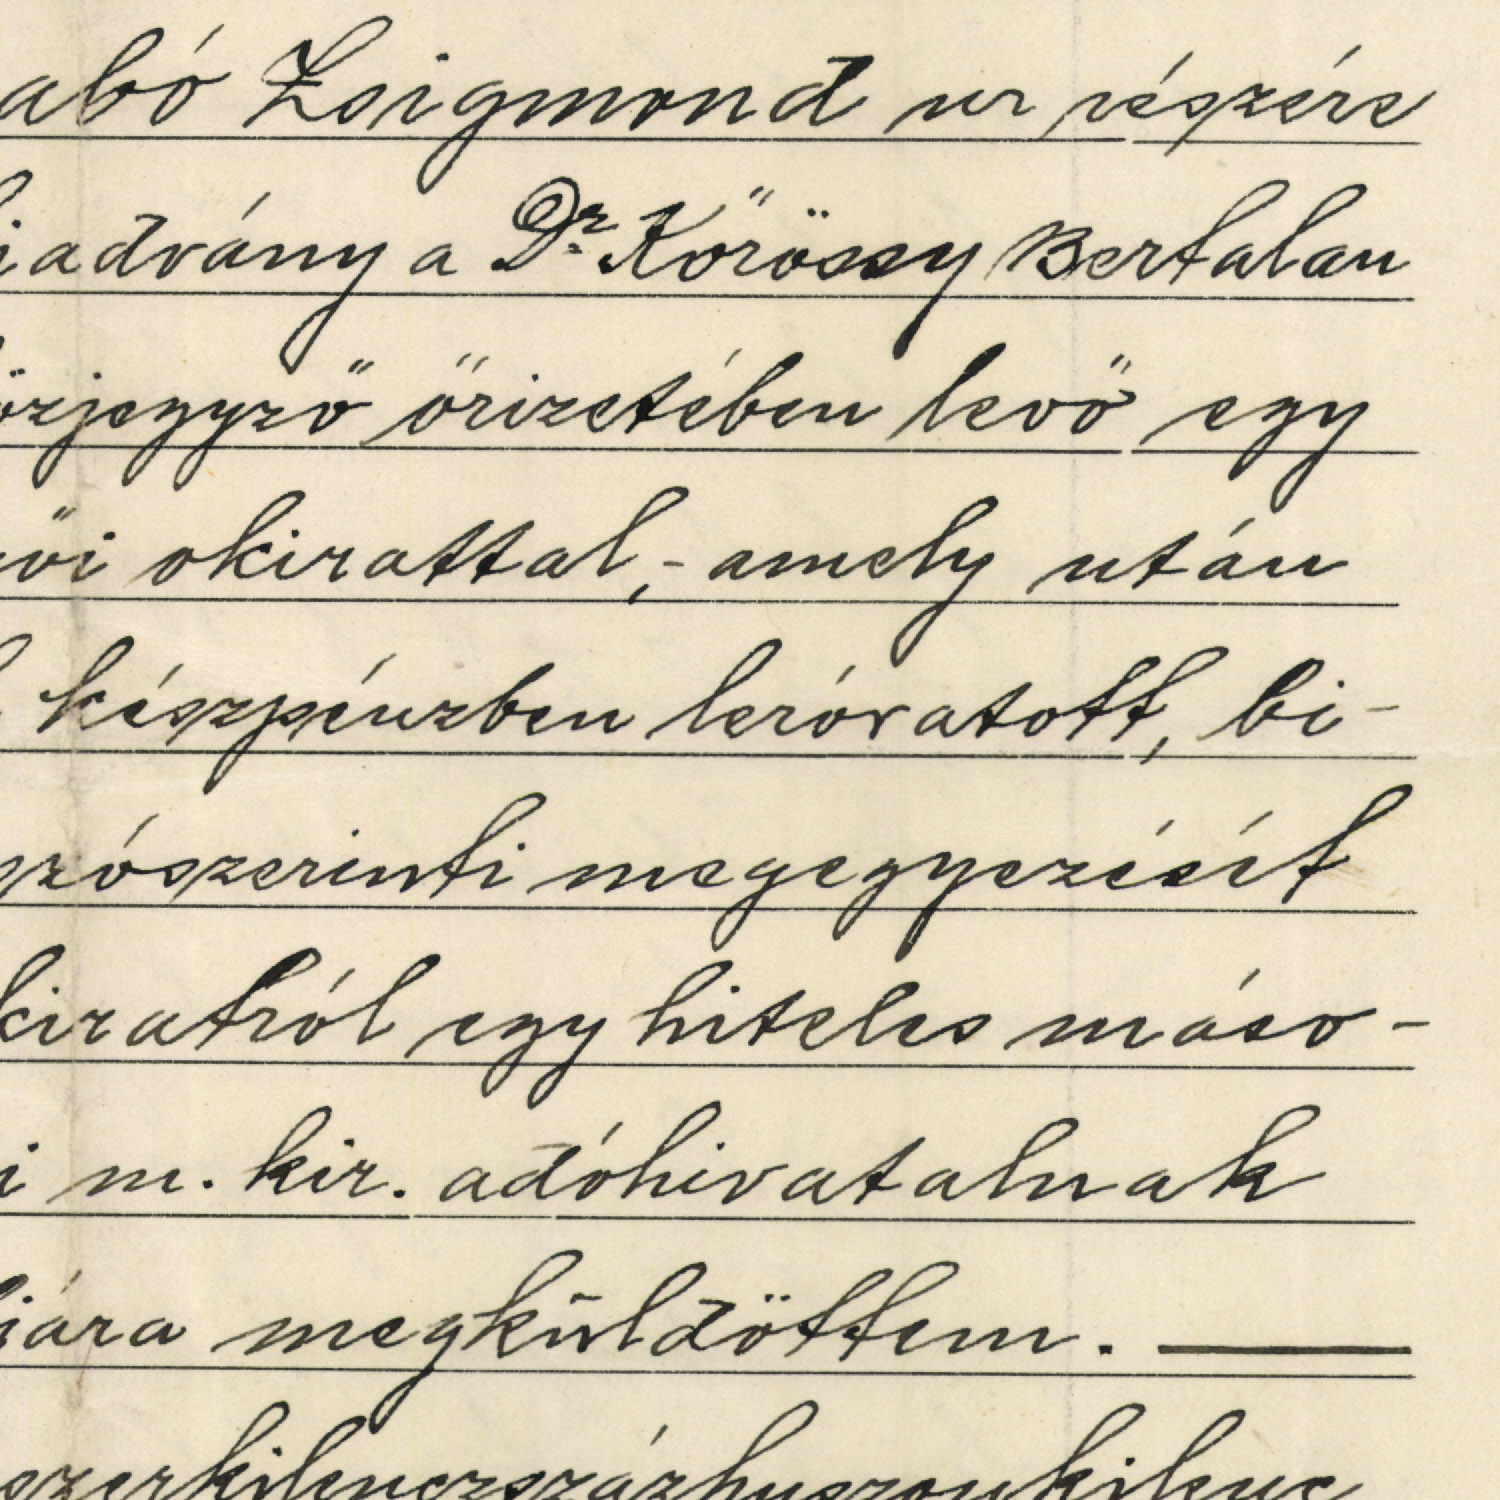 abó Zsigmond ur részére
iadvány a Dr. Kőrössy Bertalan
özjegyző őrizetében levő egy
ői okirattal,- amely után
készpénzben leróvatott, bi-
szószerinti megegyezését
kiratról egy hiteles máso-
i m. kir. adóhivatalnak
iára megküldöttem.
szerkilenczszázhuszonkilenc